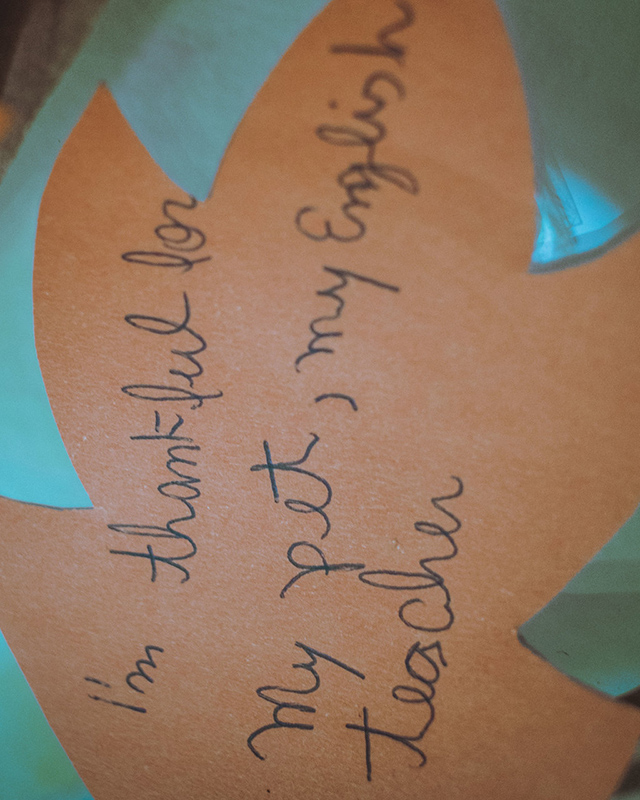 I'm thankful for
My pet, my English
teacher